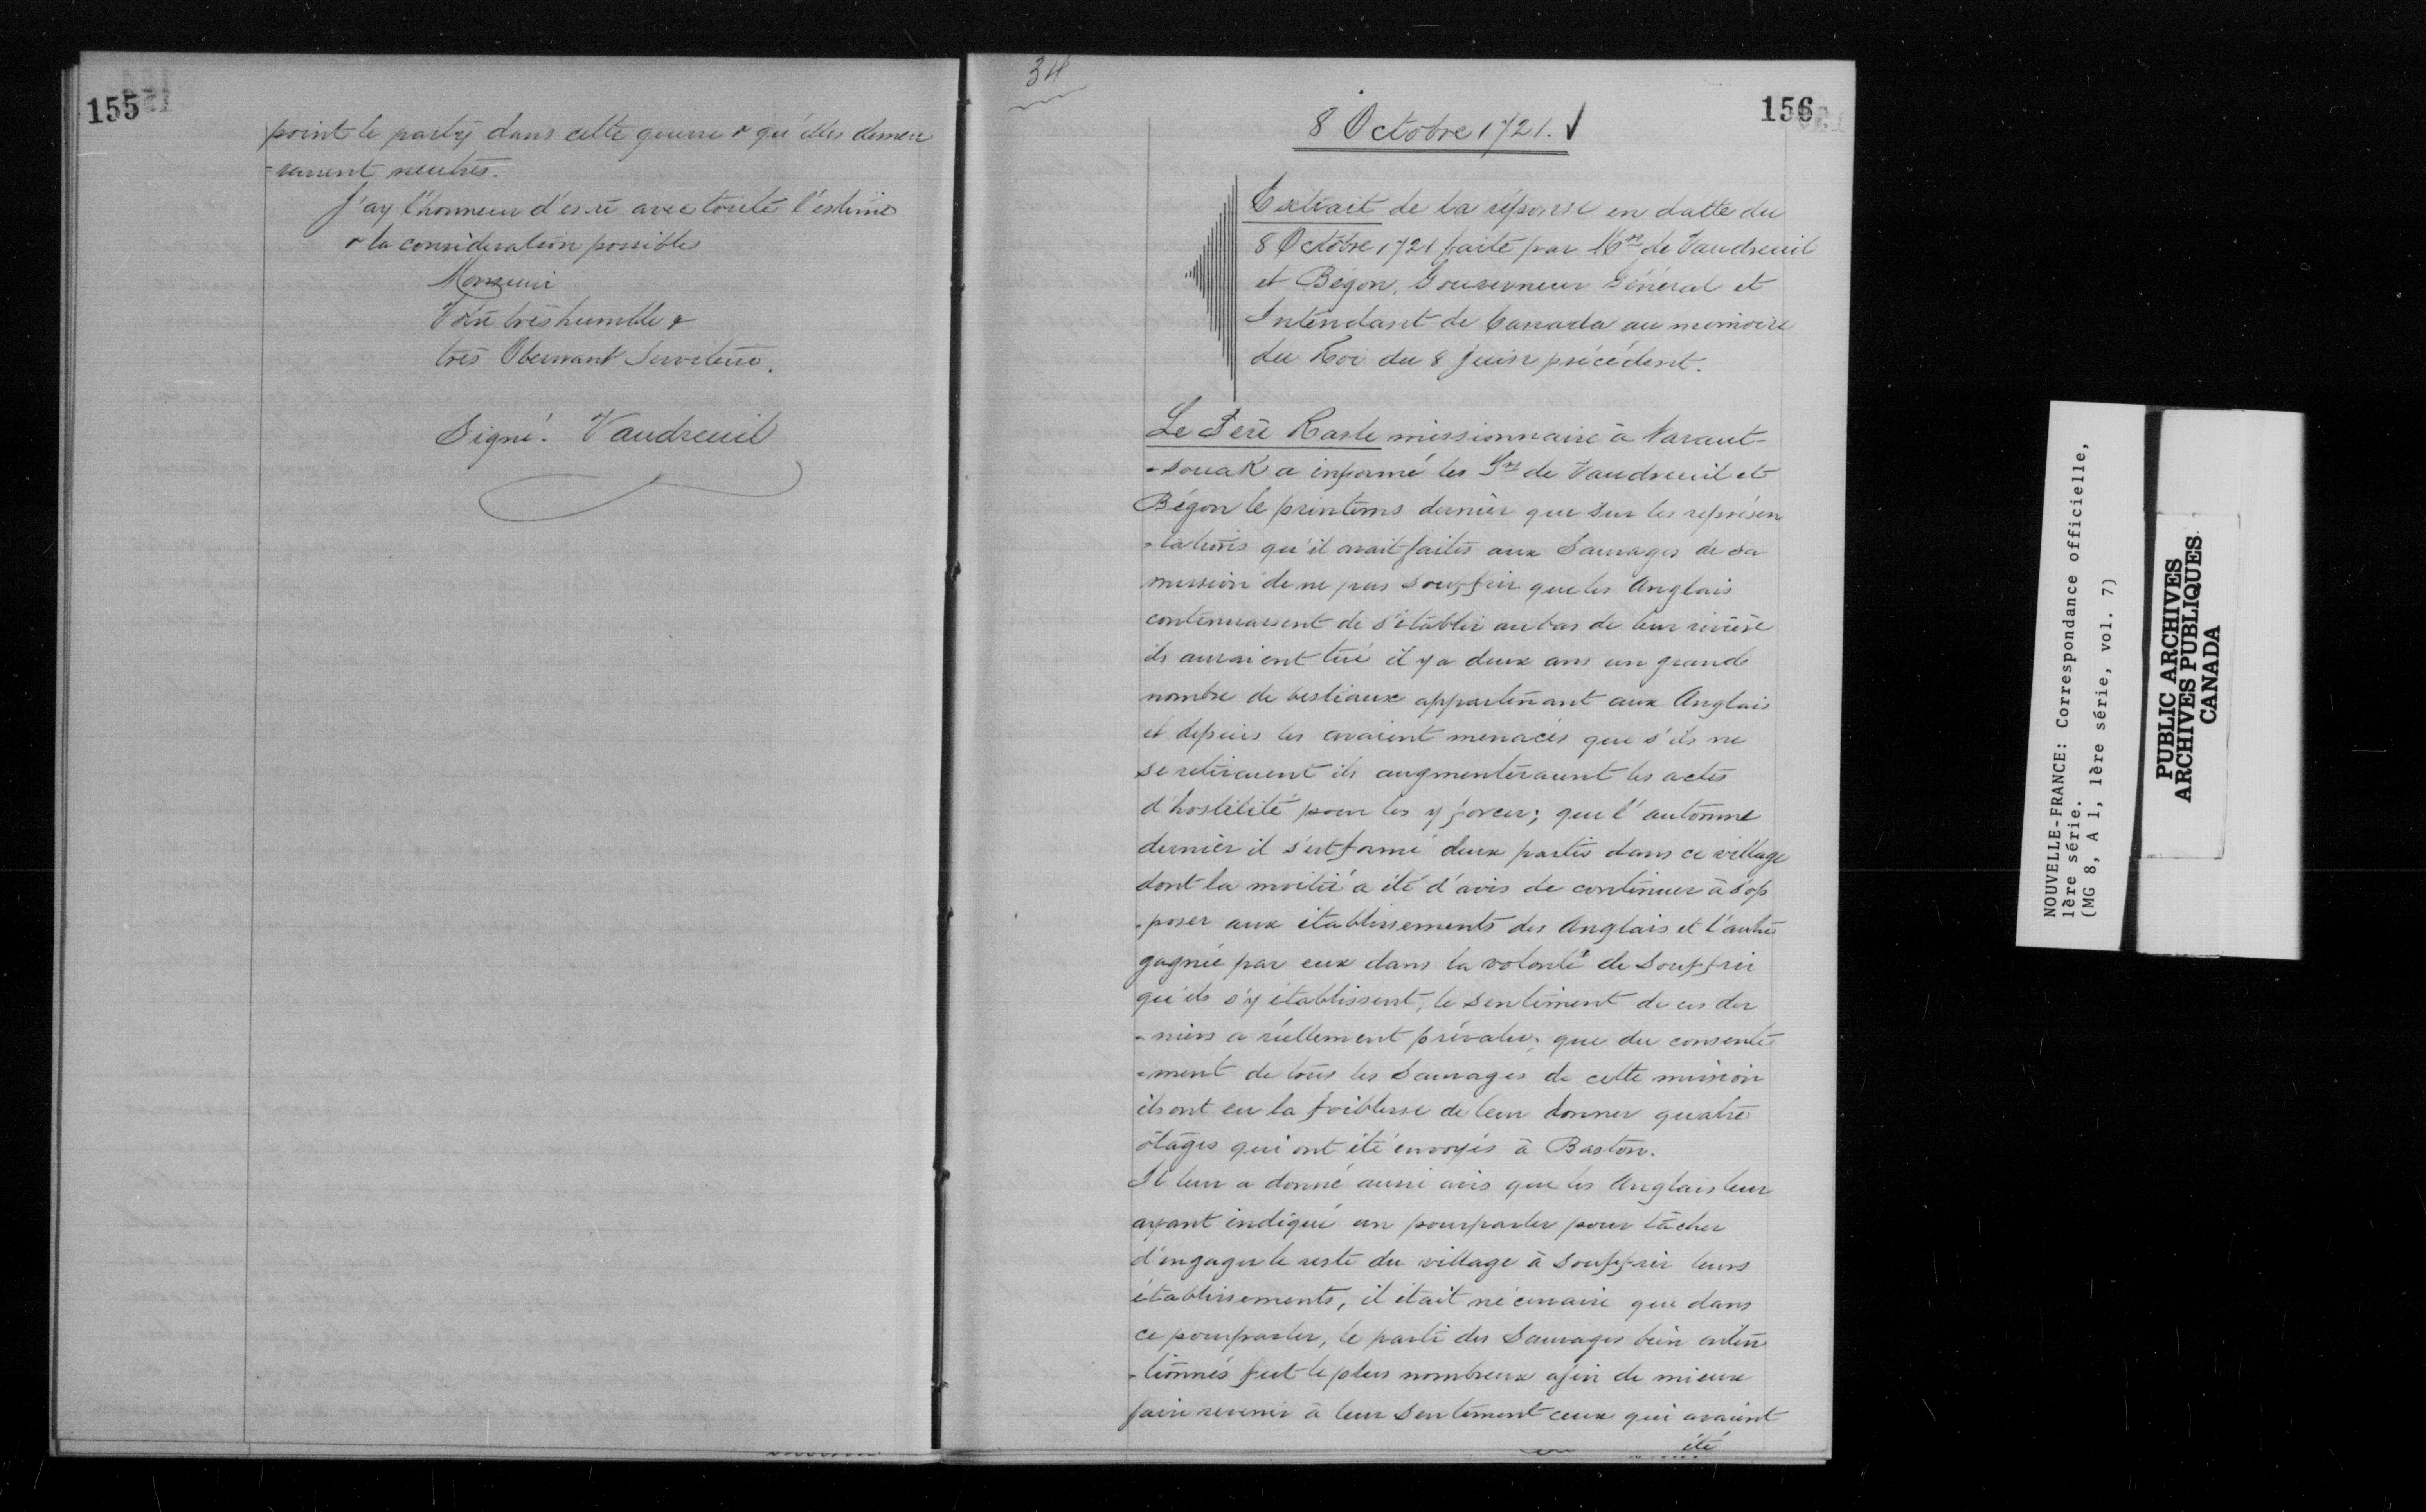 155
point le party dans cette guerre & qu'elles demeu
-rerent neutres.
J'ay l'honneur d'estre avec toute l'estime
& la consideration possibles
Monsieur
Votre très humble &
très Obeissant Serviteur.
Signé: Vaudreuil
34
156
8 Octobre 1721.
Extrait de la réponse en datte du
8 Octobre 1721 faite par Mrs de Vaudreuil
et Bégon, Gouverneur Général et
Intendant de Canada au memoire
du Roi du 8 Juin précédent.
Le Père Rasle missionnaire à Naraut-
-souak a informé les Srs de Vaudreuil et
Bégon le printems dernier que sur les représen
-tations qu'il avait faites aux Sauvages de sa
mission de ne pas souffrir que les Anglais
continuassent de s'établir au bas de leur rivière
ils auraient tué il y a deux ans un grand
nombre de bestiaux appartenant aux Anglais
et depuis les avaient menacés que s'ils ne
se retiraient ils augmenteraient les actes
d'hostilité pour les y forcer; que l'automne
dernier il s'est formé deux partis dans ce village
dont la moitié a été d'avis de continuer à s'op
-poser aux établissements des Anglais et l'autre
gagnée par eux dans la volonté de souffrir
qu'ils s'y établissent, le sentiment de ces der
-niers a réellement prévalu; que du consente
-ment de tous les Sauvages de cette mission
ils ont eu la foiblesse de leur donner quatre
ôtages qui ont été envoyés à Baston.
Il leur a donné aussi avis que les Anglais leur
ayant indiqué un pourparler pour tâcher
d'engager le reste du village à souffrir leurs
établissements, il était nécessaire que dans
ce pourparler, le parti des Sauvages bien inten
-tionnés fut le plus nombreux afin de mieux
faire revenir à leur sentiment ceux qui avaient
été
NOUVELLE-FRANCE: Correspondance officielle,
1ère série.
(MG 8, A 1, 1ère série, vol. 7)
PUBLIC ARCHIVES
ARCHIVES PUBLIQUES
CANADA